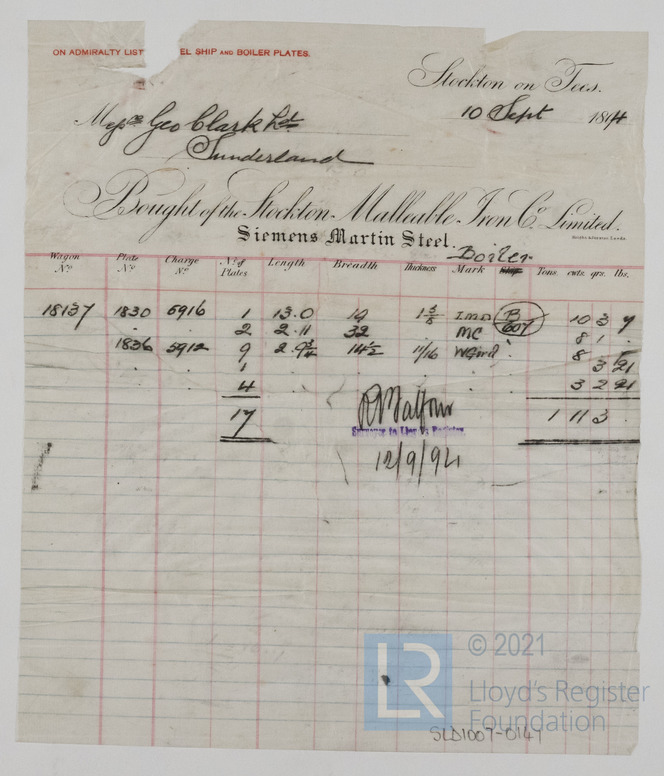 ON ADMIRALTY LIST EL SHIP AND BOILER PLATES.
Stockton on Tees.
10 Sept 1894
Messrs Geo Clark Ltd
Sunderland
Bought of the Stockton Malleable Iron Co. Limited.
Siemens Martin Steel.
Boiler
Wagon No. Plate No. Charge No. No. of Plates Length Breadth Thickness Mark Tons cwts. qrs. lbs.
18137 1830 5916 1 13.0 19 1 3/8 B 607 10 3 7
. . 2 2.11 32 MC 8 1 .
1836 5912 9 2.9 3/4 14 1/2 11/16 8
. . 1 . . . . . 3 21
. . 4 . . . . 3 2 21
17 1 11 3 .
R Balfour
Surveyor to Lloyd's Register.
12/9/94
© 2021
LR
Lloyd's Register
Foundation
SLD1007-0141